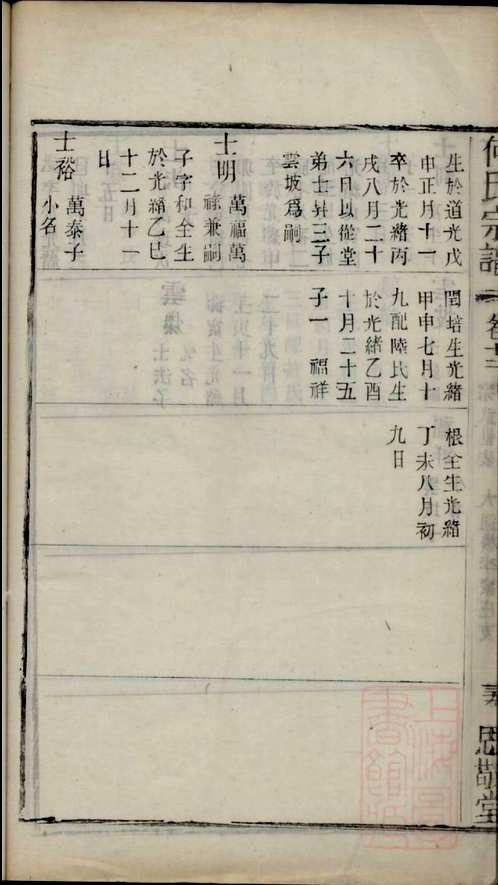 何氏宗譜
卷十三
思敬堂
生於道光戊
申正月十一
卒於光緒丙
戌八月二十
六日以從堂
弟士昇三子
雲坡爲嗣
士明 萬福萬
祿兼嗣
子字和全生
於光緒乙巳
十二月十一
日
士裕 萬泰子
小名
閏培生光緒
甲申七月十
九配陸氏生
於光緒乙酉
十月二十五
子一 福祥
根全生光緒
丁未八月初
九日
上海圖書館藏